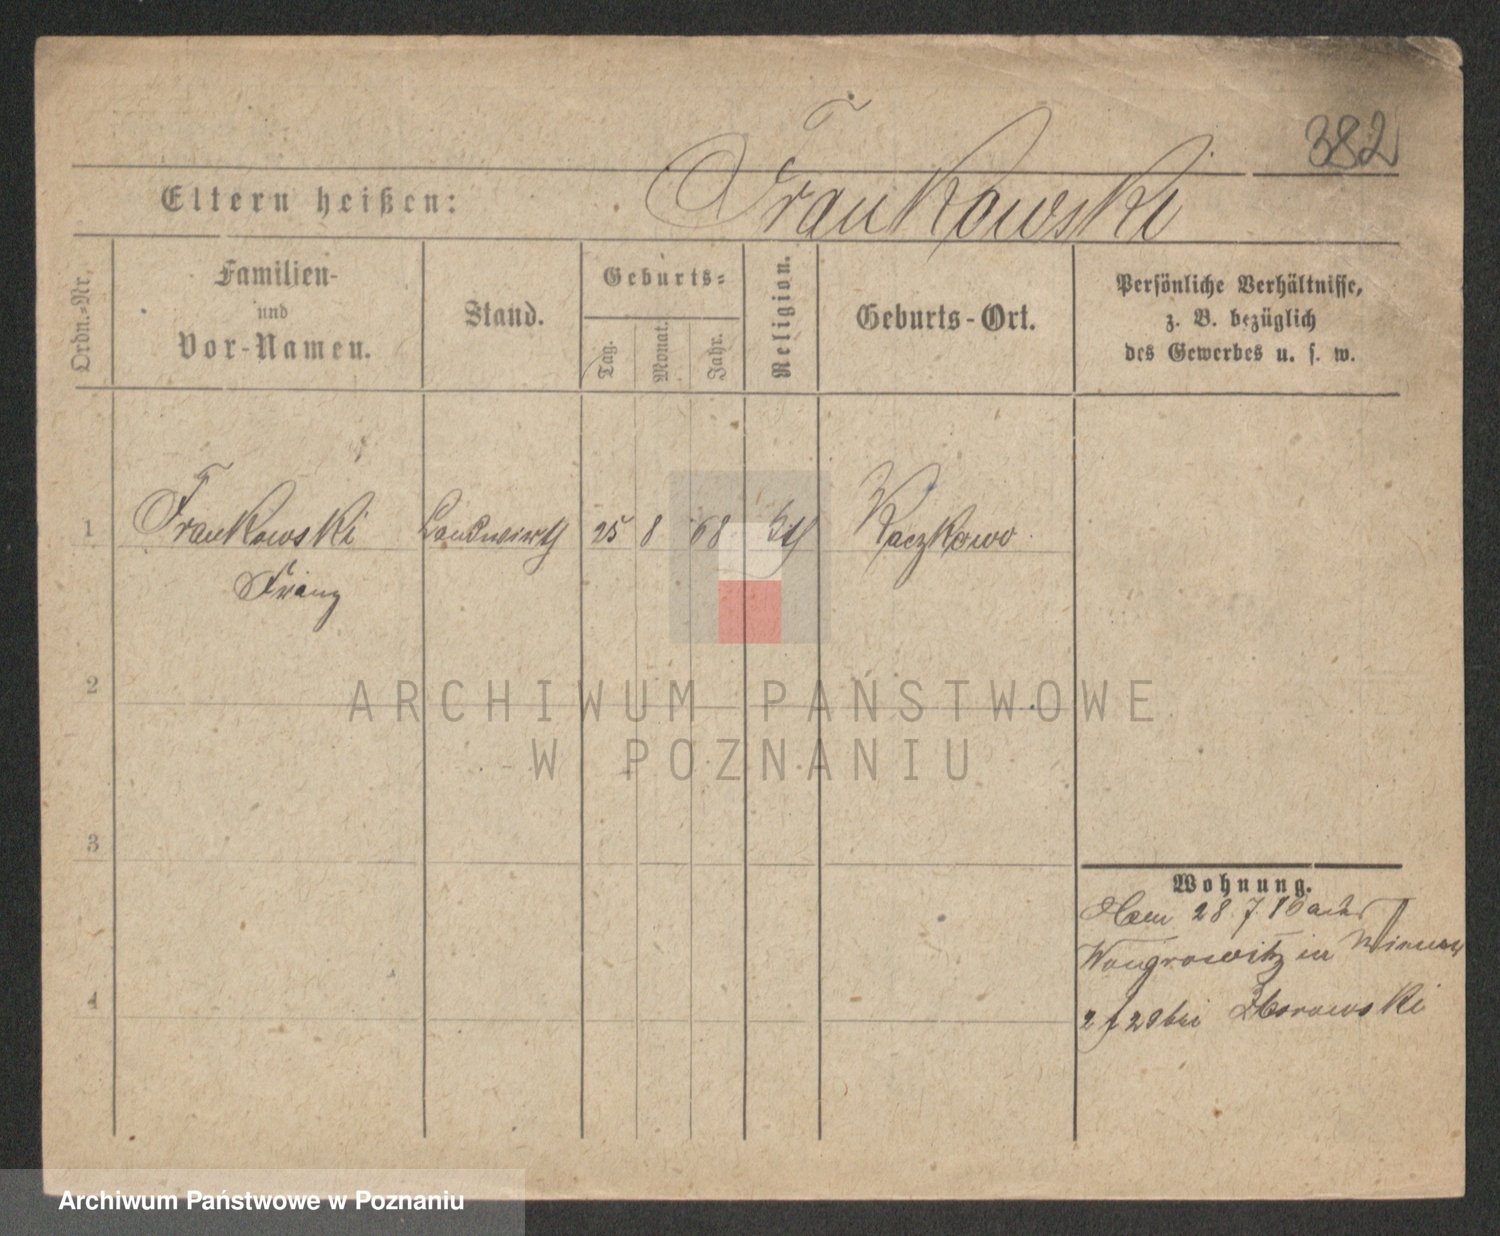 382
Frankowski
Eltern heißen:
Ordn.-Nr.
Familien-
und
Vor-Namen.
Stand.
Geburts-
Tag.
Monat.
Jahr.
Religion.
Geburts-Ort.
Persönliche Verhältnisse,
z. B. bezüglich
des Gewerbes u. s. w.
1
Frankowski
Franz
Landwirth
25
8
68
Kth
Kaczkowo
2
3
4
Wohnung.
28. 7.
Wongrowitz in
bei
ARCHIWUM PAŃSTWOWE
W POZNANIU
Archiwum Państwowe w Poznaniu